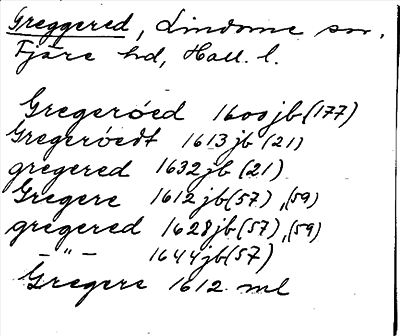 Greggered, Lindome sn.
Fjäre hd, Hall. l.
Gregeróed 1600 jb (177)
Gregeróedt 1613 jb (21)
gregered 1632 jb (21)
Gregere 1612 jb (57), (59)
gregered 1628 jb (57), (59)
– " – 1644 jb (57)
Gregere 1612 ml